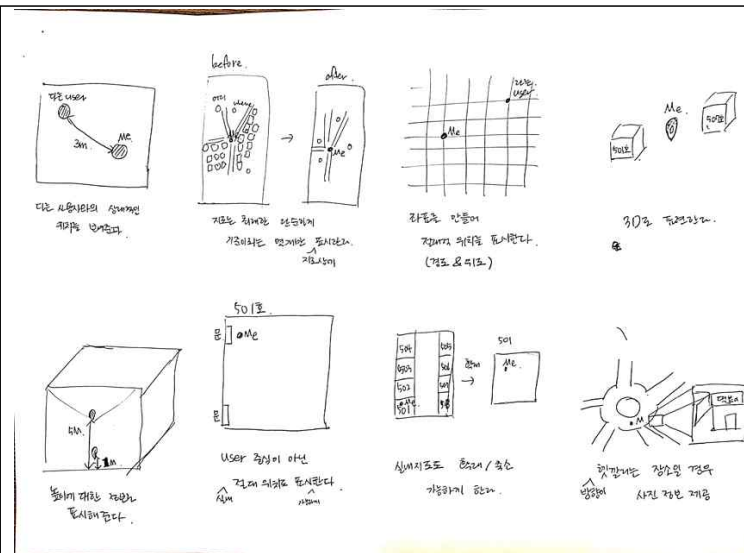 다른 user
3m.
Me.
다른 사용자와의 상대적인
위치를 보여준다.
before.
after.
Me
지도는 최대한 단순하게
표시한다.
다른
user.
Me
좌표를 만들어
절대적 위치를 표시한다.
(경도 & 위도)
Me.
501호
3D로 표현한다.
5m
1m
높이에 대한 정보도
표시해준다.
501호
문
Me
문
user 중심이 아닌
실제
절대 위치로 표시한다.
504
503
502
501
Me
505
506
507
확대
501
Me
실내지도도 확대/축소
가능하게 한다.
M
헷갈리는 장소일 경우
방향이
사진 정보 제공